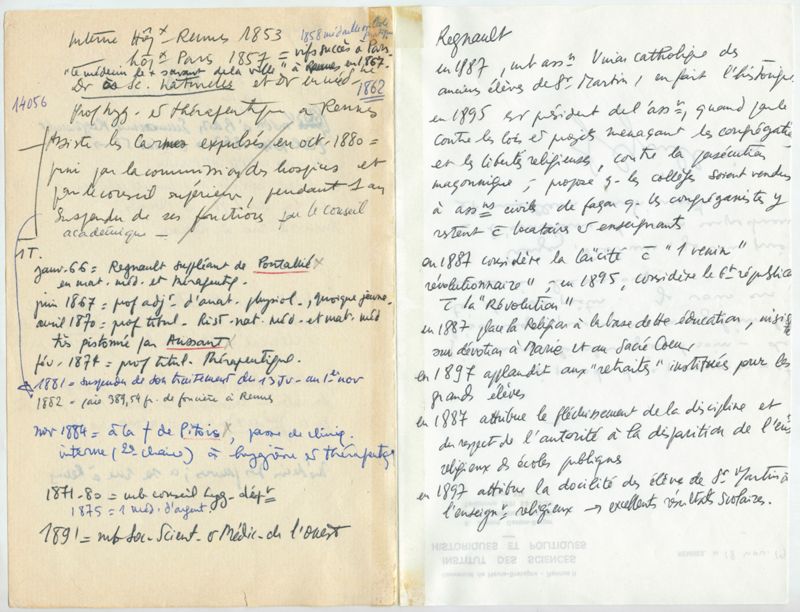 Interne Hôp. Rennes 1853
1858 médaille
hôp. Paris 1857 = vif succès à Paris
"le médecin le + savant de la ville" à Rennes en 1867.
Dr ès Sc. naturelles et Dr en méd
1862
14056
Prof hyg. et thérapeutique à Rennes
Assiste les Carmes expulsés en oct. 1880 =
puni par la commission des hospices et
par le conseil supérieur, pendant 1 an
suspendu de ses fonctions par le Conseil
académique —
1T.
janv. 66 = Regnault suppléant de Pontallié x
en mat. méd. et thérapeutiq.
juin 1867 = prof adjt d'anat. physiol., quoique jeune.
avril 1870 = prof titul. Hist. nat. méd. et mat. méd
très pistonné par Aussant
fév. 1874 = prof titul. Thérapeutique.
1881 = suspendu de son traitement du 13 Jv. au 1er nov
1882 = paie 389,54 fr. de foncière à Rennes
nov 1884 = à la † de Pitois x, passe de cliniq.
interne (2e chaire) à hygiène et thérapeutiq
1871-80 = mb conseil hyg. dépt
1875 = 1 méd. d'argent
1891 = mb Soc. Scient. & Médic. de l'Ouest
Regnault
en 1987, mb assn Union catholique des
anciens élèves de St Martin, en fait l'historique
en 1895 est président de l'assn, quand parle
contre les lois et projets menaçant les congrégatn
et les libertés religieuses, contre la persécution
maçonnique ; propose q. les collèges soient vendus
à assns civiles de façon q. les congréganistes y
restent c locataires et enseignants
en 1887 considère la laïcité c "1 venin"
révolutionnaire", en 1895, considère le Gt république
c la "Révolution"
en 1887, place la Religion à la base de tte éducation, insiste
sur dévotion à Marie et au Sacré Coeur
en 1897 applaudit aux "retraites" instituées pour les
grands élèves
en 1887 attribue le fléchissement de la discipline et
du respect de l'autorité à la disparition de l'ens
religieux des écoles publiques
en 1897 attribue la docilité des élève de St Martin à
l'enseignt religieux → excellents résultats scolaires.
HISTORIQUES ET POLITIQUES
INSTITUT DES SCIENCES
Université de Haute-Bretagne - Rennes II